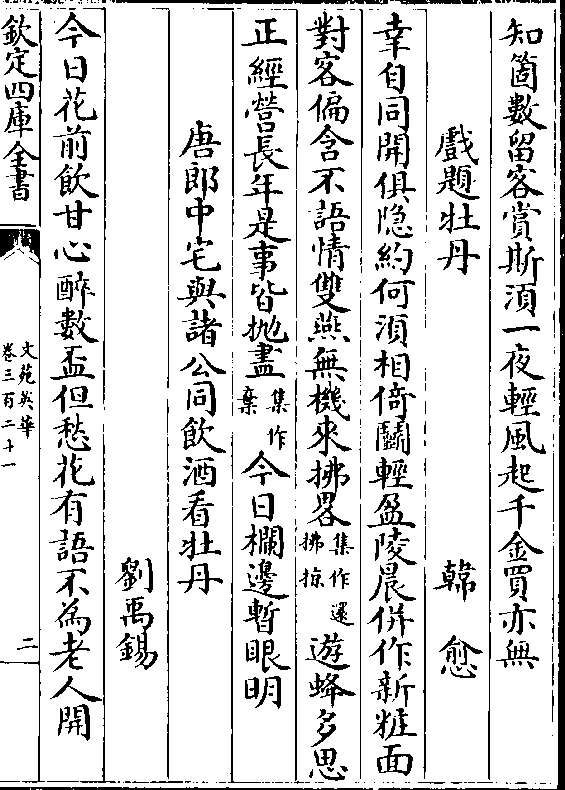 知箇數留客賞斯須一夜輕風起千金買亦無
戲題牡丹　韓愈
幸自同開俱隐約何須相倚鬭輕盈陵晨併作新粧面
對客偏含不語情雙燕無機來拂畧集作還拂掠遊蜂多思
正經營長年是事皆抛盡集作棄今日欄邊暫眼明
唐郎中宅與諸公同飲酒看牡丹
劉禹錫
今日花前飲甘心醉數盃但愁花有語不為老人開
欽定四庫全書
文苑英華
卷三百二十一
二